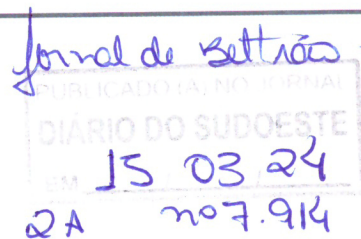 Jornal de Beltrão
PUBLICADO (A) NO JORNAL
DIÁRIO DO SUDOESTE
EM 15 03 24
2A nº 7.914